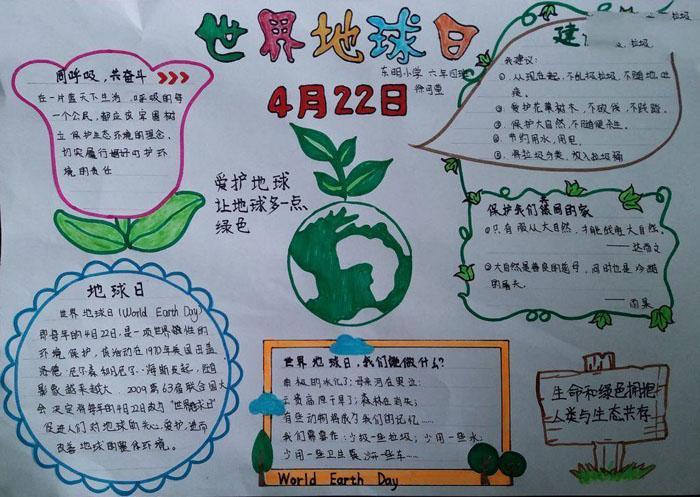 世界地球日
东明小学 六年四班
4月22日
同呼吸,共奋斗
在一片蓝天下生活,呼吸的每
一个公民,都应该牢固树
立保护生态环境的理念,
切实履行好呵护环
境的责任
爱护地球
让地球多一点
绿色
建
我建议:
①、从现在起,不乱扔垃圾,不随地吐
痰。
②、爱护花草树木,不砍伐,不践踏。
③、保护大自然,不随便杀生。
④、节约用水,用电。
⑤、将垃圾分类,放入垃圾桶
保护我们共同的家
①只有服从大自然,才能战胜大自然。
——达尔文
②大自然是善良的慈母,同时也是冷酷
的屠夫。
——雨果
地球日
世界地球日(World Earth Day)
即每年的4月22日,是一项世界性的
环境保护,该活动在1970年美国由盖
洛德·尼尔森和丹尼斯·海斯发起,随后
影响越来越大。2009第63届联合国大
会决定将每年的4月22日定为“世界地球日”
促进人们对地球的关心、爱护,进而
改善地球的整体环境。
世界地球日,我们能做什么?
南极的冰化了;母亲河在哭泣
云贵高原干旱了;森林在消失
有些动物将成了我们的记忆……
我们要看作:少扔一些垃圾;少用一些水;
少用一些卫生筷;少开一些车……
World Earth Day
生命和绿色拥抱
人类与生态共存